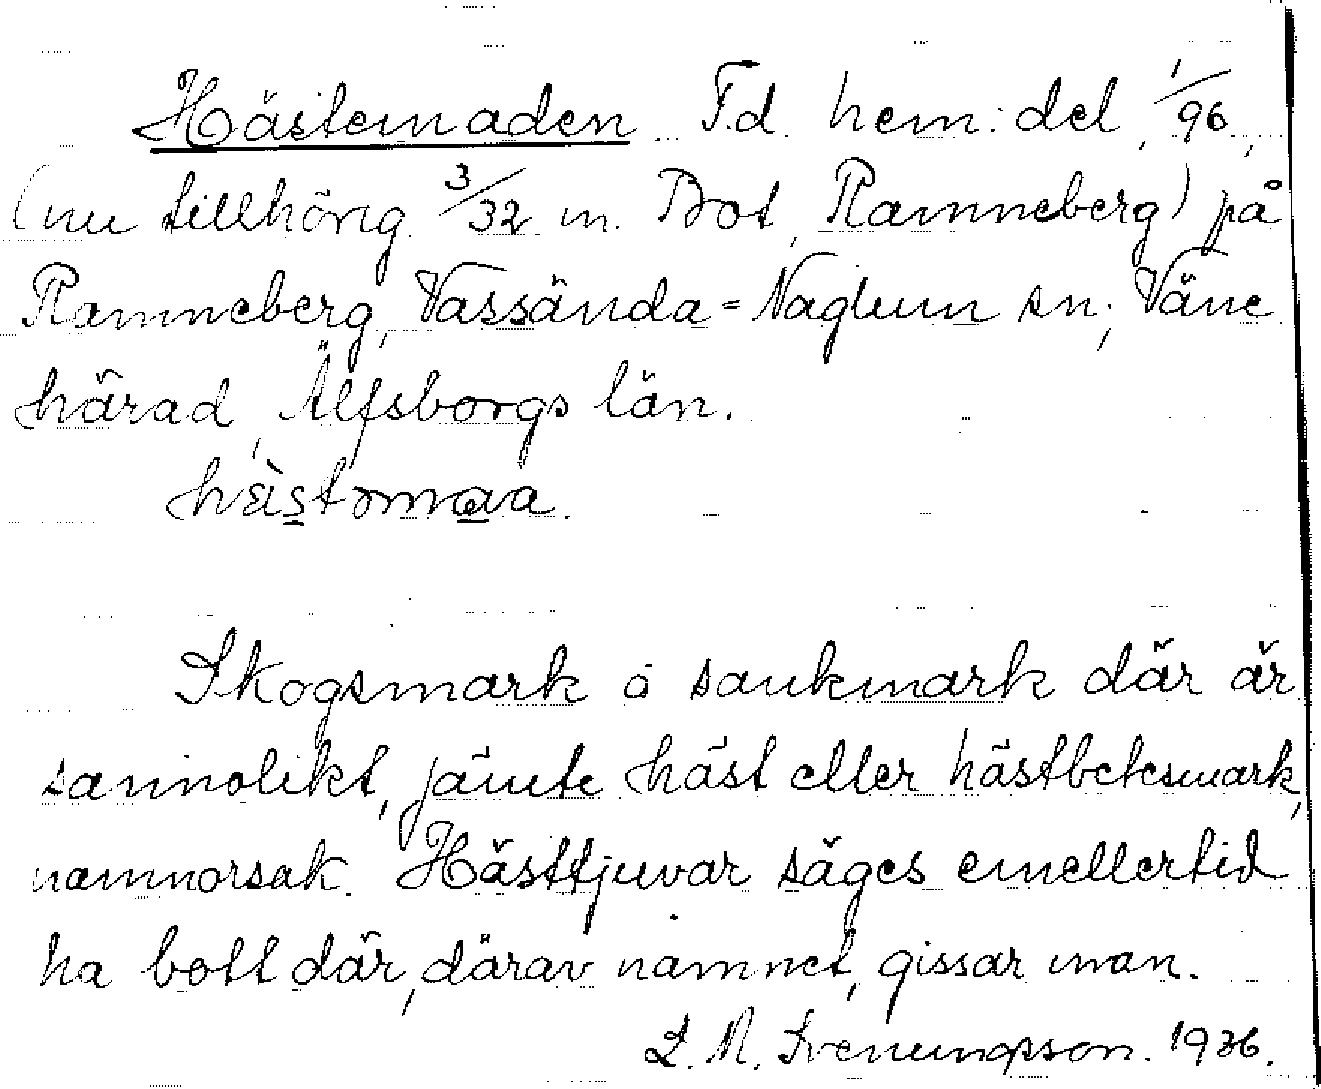 Hästemaden T.d. hem: del, 1/96,
(nu tillhörig 3/32 m. Brot, Ramneberg) på
Ramneberg, Vassända=Naglum sn; Väne
härad, Älfsborgs län.
hästomaa.
Skogsmark o saukmark där är
sannolikt, jämte häst eller hästbetesmark,
namnorsak. Hästtjuvar säges emellertid
ha bott där, därav namnet, gissar man.
L. M. Svenungsson. 1936.